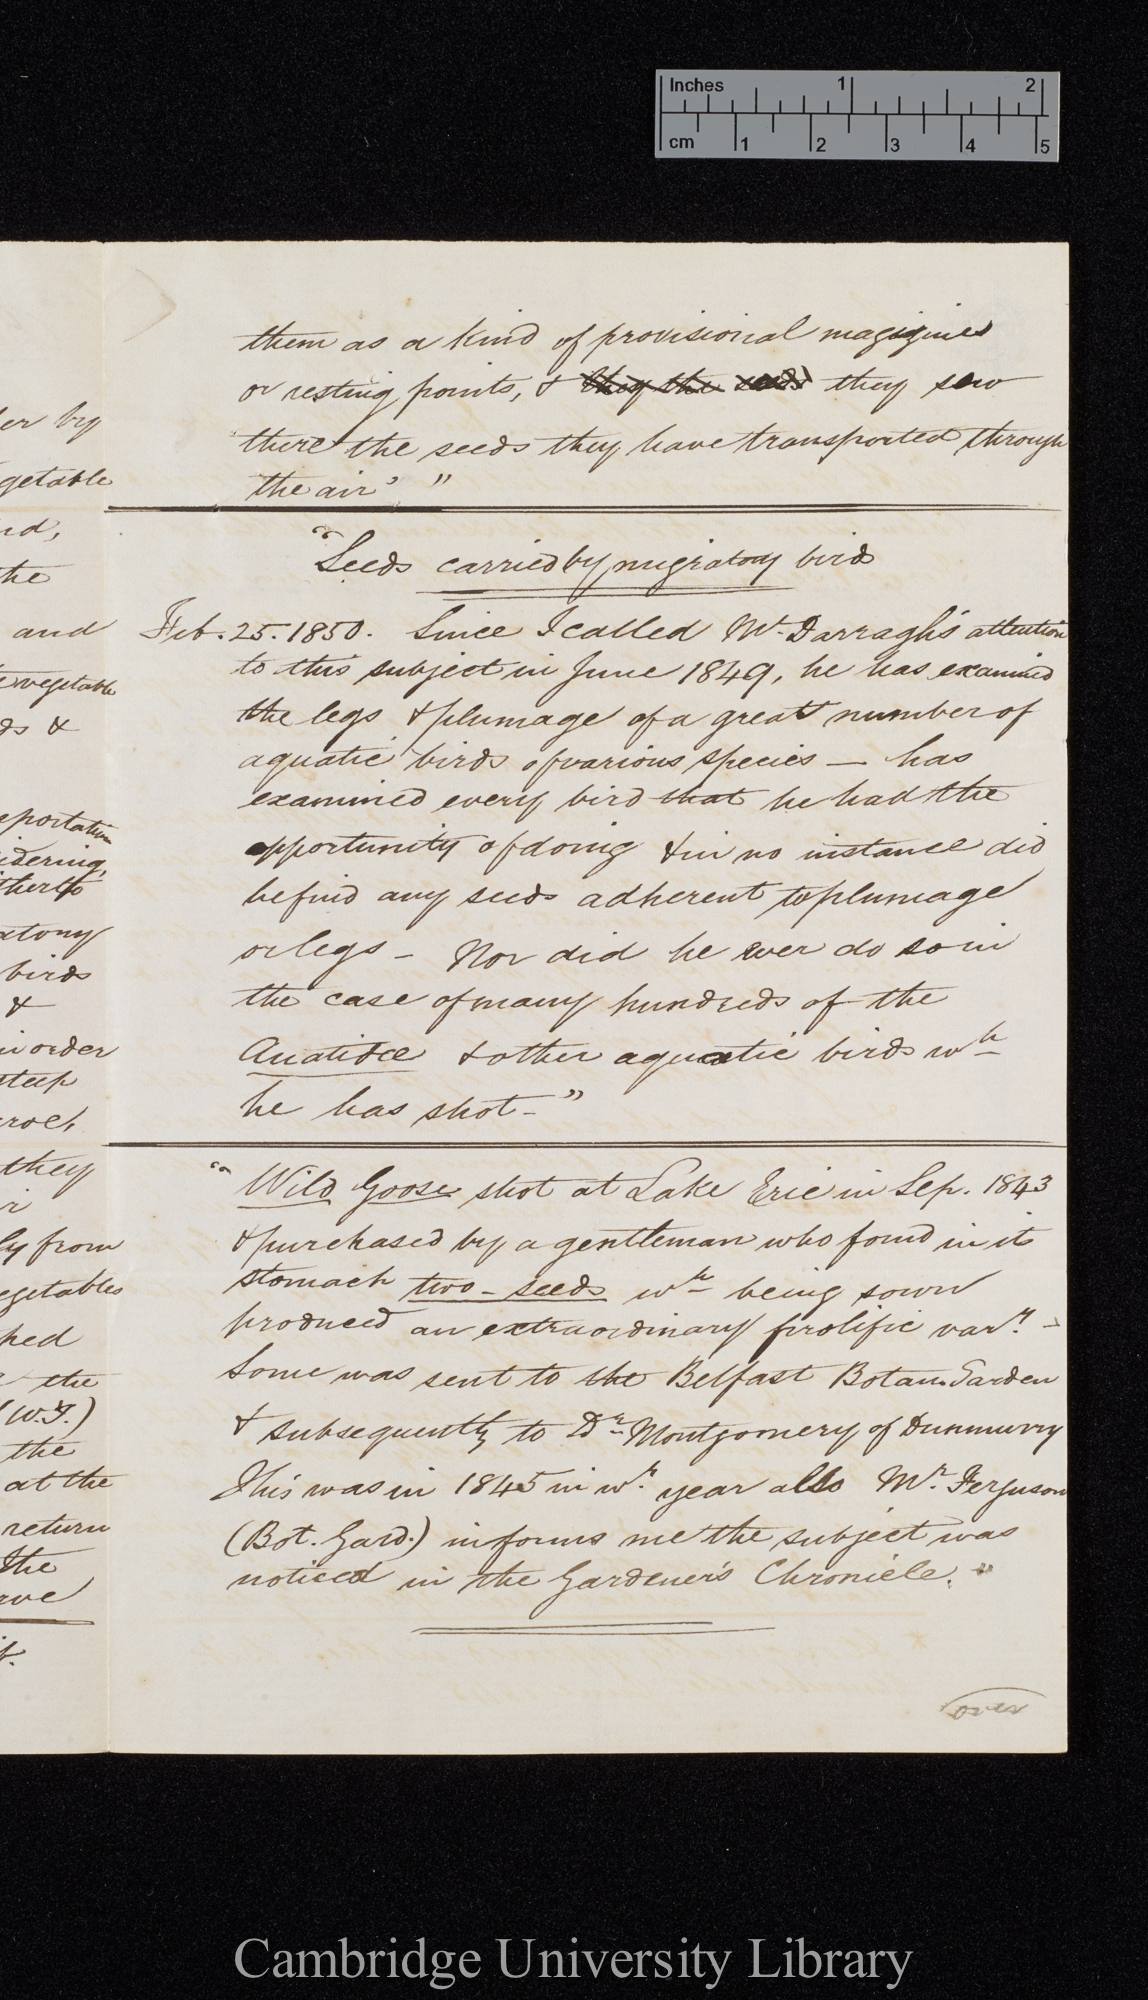 Inches 1 2
cm 1 2 3 4 5
them as a kind of provisional magazines
or resting points, & they the seeds they sow
there the seeds they have transported through
the air' "
"Seeds carried by migratory bird
Feb. 25. 1850. Since I called Mr. Darragh's attention
to this subject in June 1849, he has examined
the legs & plumage of a great number of
aquatic birds of various species — has
examined every bird that he had the
opportunity of doing & in no instance did
he find any seeds adherent to plumage
or legs - Nor did he ever do so in
the case of many hundreds of the
Anatidae & other aquatic birds wh
he has shot-"
"Wild Goose shot at Lake Erie in Sep. 1843
& purchased by a gentleman who found in its
stomach two-seeds wh being sown
produced an extraordinary prolific vary. -
Some was sent to the Belfast Botan. Garden
& subsequently to Dr Montgomery of Dunmurry
This was in 1845 in wh. year also Mr. Ferguson
(Bot. Gard.) informs me the subject was
noticed in the Gardener's Chronicle."
over
er by
getable
nd,
the
and
vegetable
ds &
eportation
idering,
atory
birds
&
in order
steep
they
ly from
egetables
ked
the
(W.T.)
the
at the
return
the
Cambridge University Library